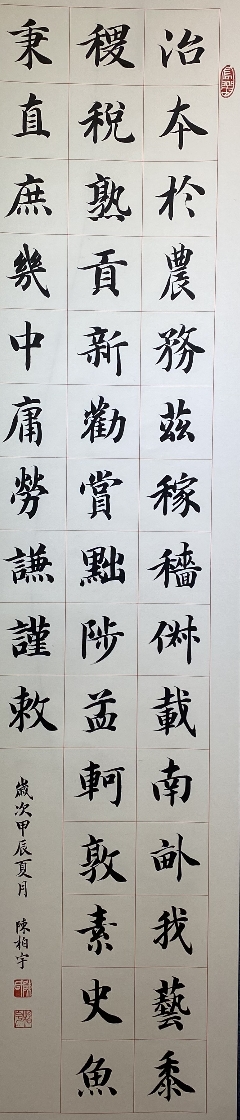 治本於農務茲稼穡俶載南畝我藝黍
稷稅熟貢新勸賞黜陟孟軻敦素史魚
秉直庶幾中庸勞謙謹敕
歲次甲辰夏月 陳柏宇